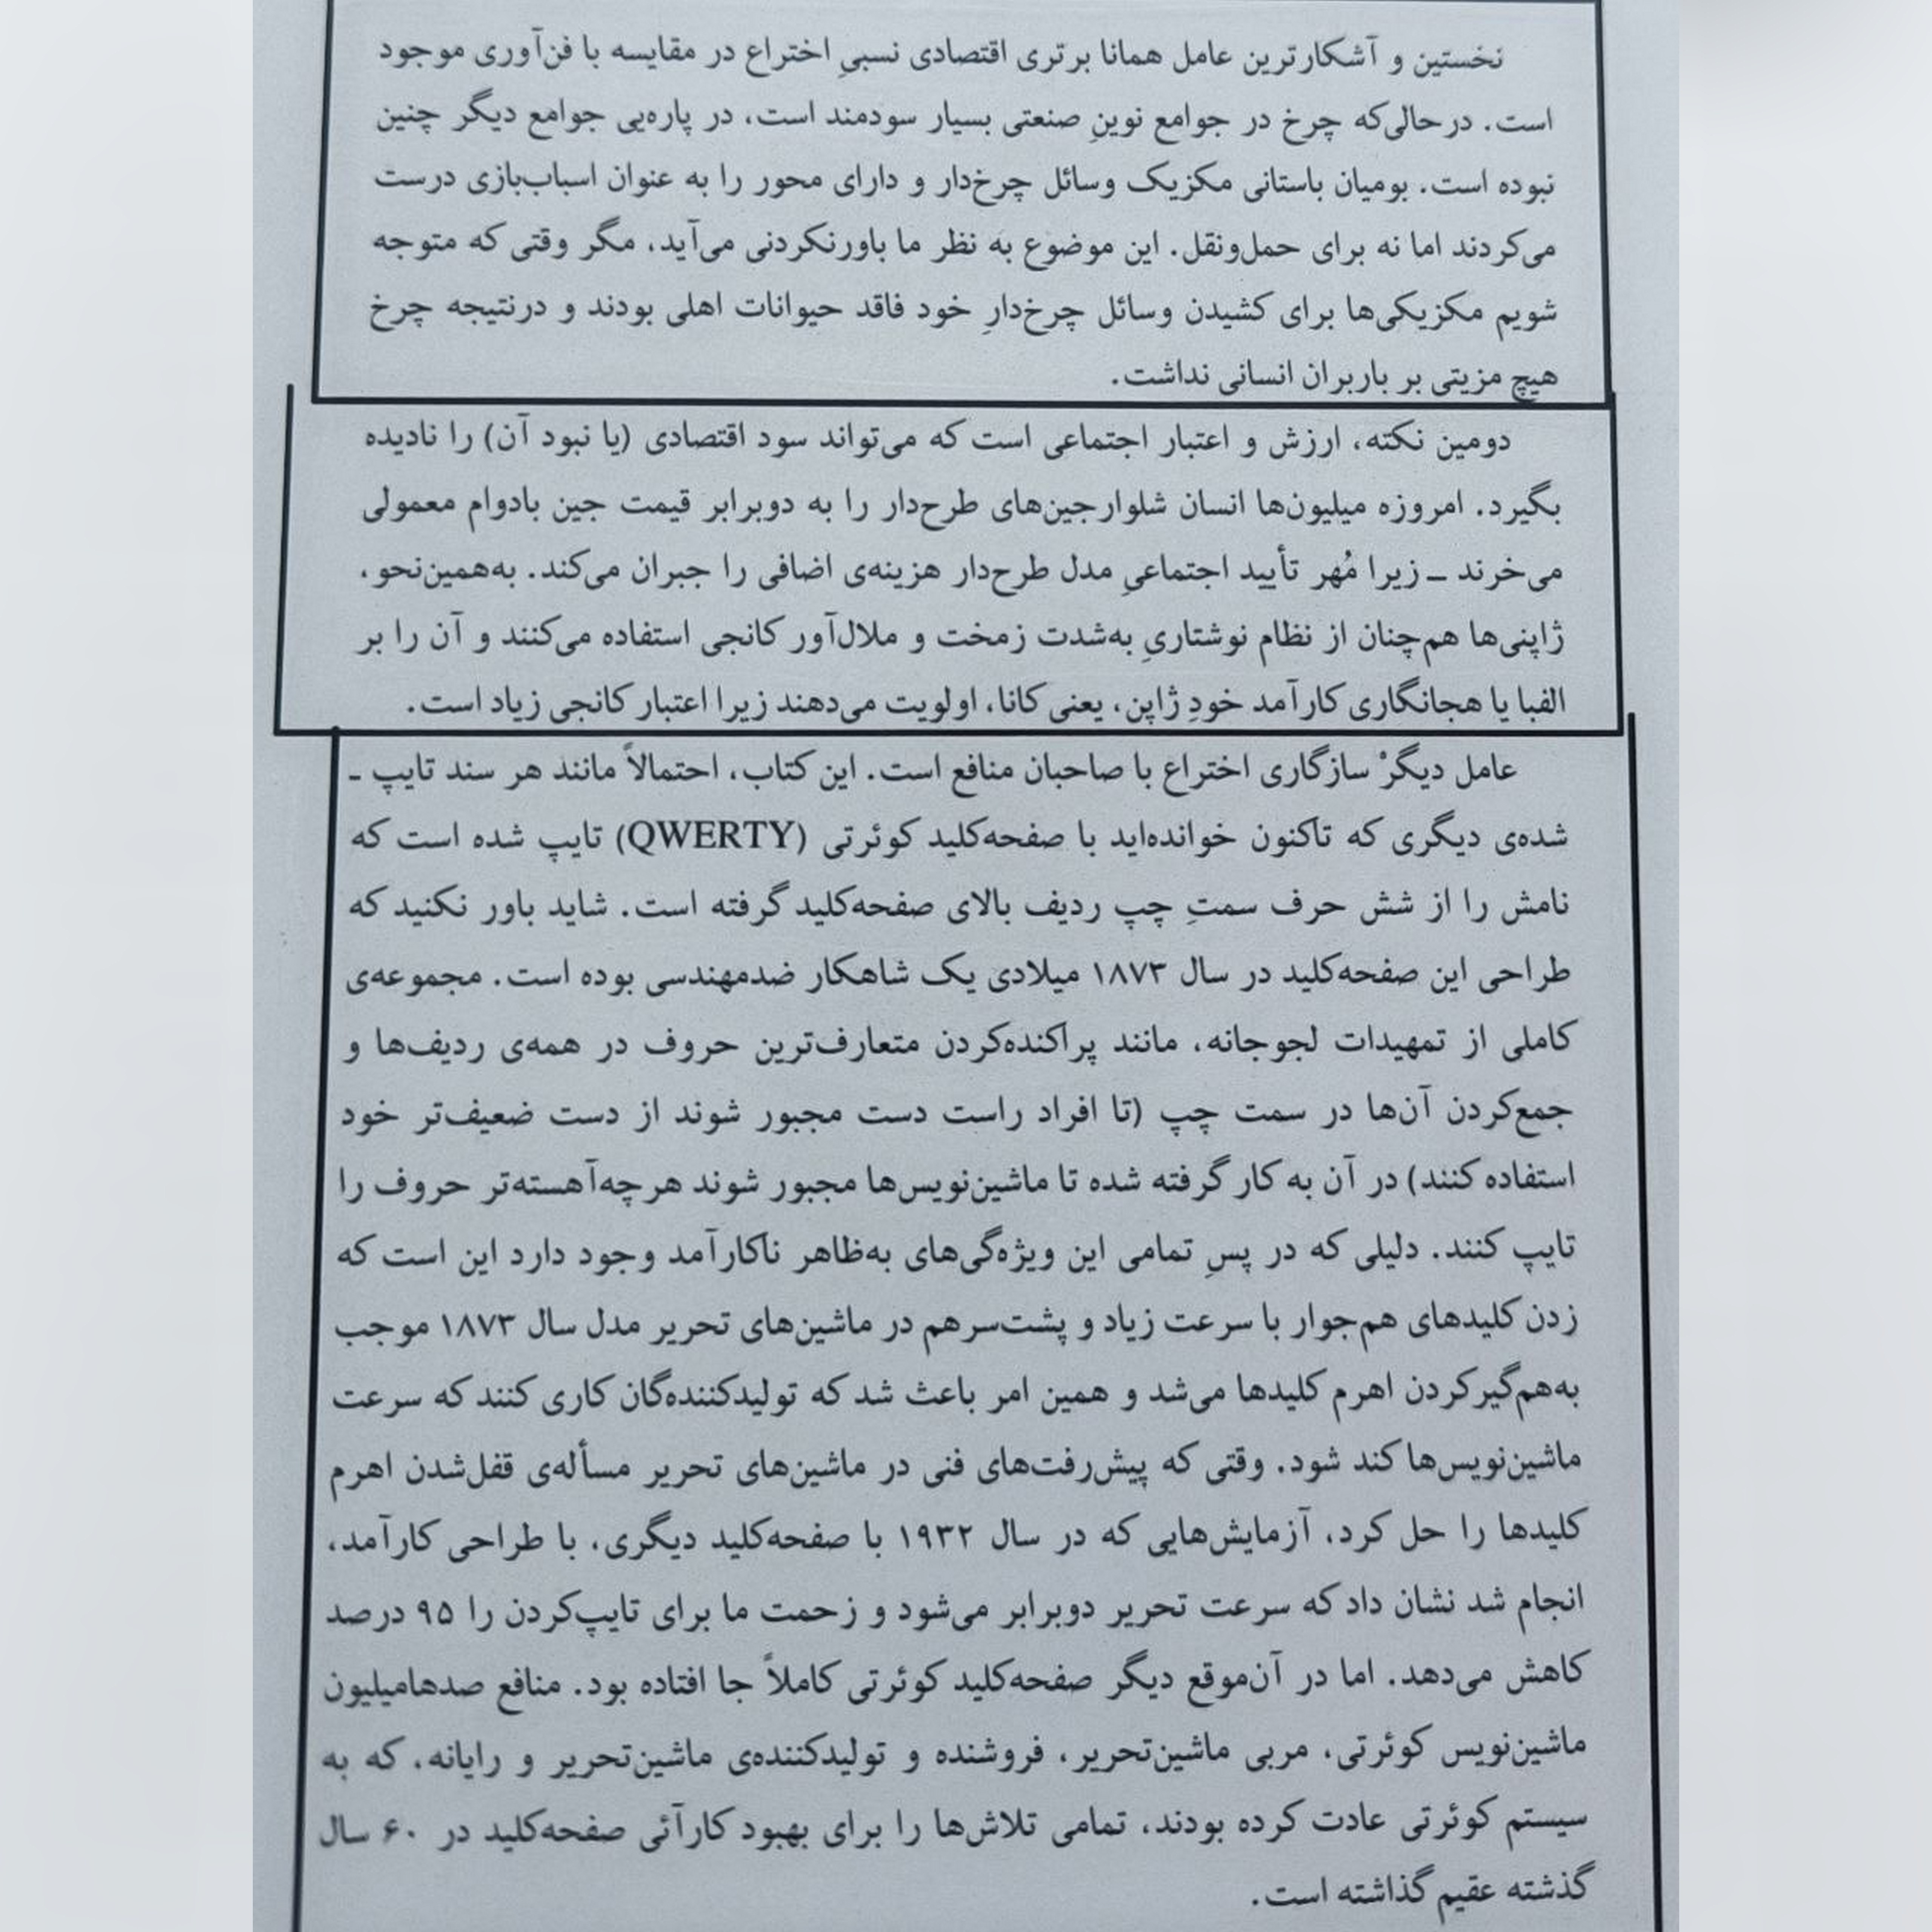 نخستین و آشکارترین عامل همانا برتری اقتصادی نسبیِ اختراع در مقایسه با فن‌آوری موجود
است. درحالی‌که چرخ در جوامع نوینِ صنعتی بسیار سودمند است، در پاره‌یی جوامع دیگر چنین
نبوده است. بومیان باستانی مکزیک وسائل چرخ‌دار و دارای محور را به عنوان اسباب‌بازی درست
می‌کردند اما نه برای حمل‌ونقل. این موضوع به نظر ما باورنکردنی می‌آید، مگر وقتی که متوجه
شویم مکزیکی‌ها برای کشیدن وسائل چرخ‌دارِ خود فاقد حیوانات اهلی بودند و درنتیجه چرخ
هیچ مزیتی بر باربران انسانی نداشت.
دومین نکته، ارزش و اعتبار اجتماعی است که می‌تواند سود اقتصادی (یا نبود آن) را نادیده
بگیرد. امروزه میلیون‌ها انسان شلوارجین‌های طرح‌دار را به دوبرابر قیمت جین بادوام معمولی
می‌خرند ـ زیرا مُهر تأیید اجتماعیِ مدل طرح‌دار هزینه‌ی اضافی را جبران می‌کند. به‌همین‌نحو،
ژاپنی‌ها هم‌چنان از نظام نوشتاریِ به‌شدت زمخت و ملال‌آور کانجی استفاده می‌کنند و آن را بر
الفبا یا هجانگاری کارآمد خودِ ژاپن، یعنی کانا، اولویت می‌دهند زیرا اعتبار کانجی زیاد است.
عامل دیگرْ سازگاری اختراع با صاحبان منافع است. این کتاب، احتمالاً مانند هر سند تایپ ـ
شده‌ی دیگری که تاکنون خوانده‌اید با صفحه‌کلید کوئرتی (QWERTY) تایپ شده است که
نامش را از شش حرف سمتِ چپ ردیف بالای صفحه‌کلید گرفته است. شاید باور نکنید که
طراحی این صفحه‌کلید در سال ۱۸۷۳ میلادی یک شاهکار ضدمهندسی بوده است. مجموعه‌ی
کاملی از تمهیدات لجوجانه، مانند پراکنده‌کردن متعارف‌ترین حروف در همه‌ی ردیف‌ها و
جمع‌کردن آن‌ها در سمت چپ (تا افراد راست دست مجبور شوند از دست ضعیف‌تر خود
استفاده کنند) در آن به کار گرفته شده تا ماشین‌نویس‌ها مجبور شوند هرچه‌آهسته‌تر حروف را
تایپ کنند. دلیلی که در پسِ تمامی این ویژه‌گی‌های به‌ظاهر ناکارآمد وجود دارد این است که
زدن کلیدهای هم‌جوار با سرعت زیاد و پشت‌سرهم در ماشین‌های تحریر مدل سال ۱۸۷۳ موجب
به‌هم‌گیرکردن اهرم کلیدها می‌شد و همین امر باعث شد که تولیدکننده‌گان کاری کنند که سرعت
ماشین‌نویس‌ها کند شود. وقتی که پیش‌رفت‌های فنی در ماشین‌های تحریر مسأله‌ی قفل‌شدن اهرم
کلیدها را حل کرد، آزمایش‌هایی که در سال ۱۹۳۲ با صفحه‌کلید دیگری، با طراحی کارآمد،
انجام شد نشان داد که سرعت تحریر دوبرابر می‌شود و زحمت ما برای تایپ‌کردن را ۹۵ درصد
کاهش می‌دهد. اما در آن‌موقع دیگر صفحه‌کلید کوئرتی کاملاً جا افتاده بود. منافع صدهامیلیون
ماشین‌نویس کوئرتی، مربی ماشین‌تحریر، فروشنده و تولیدکننده‌ی ماشین‌تحریر و رایانه، که به
سیستم کوئرتی عادت کرده بودند، تمامی تلاش‌ها را برای بهبود کارآئی صفحه‌کلید در ۶۰ سال
گذشته عقیم گذاشته است.